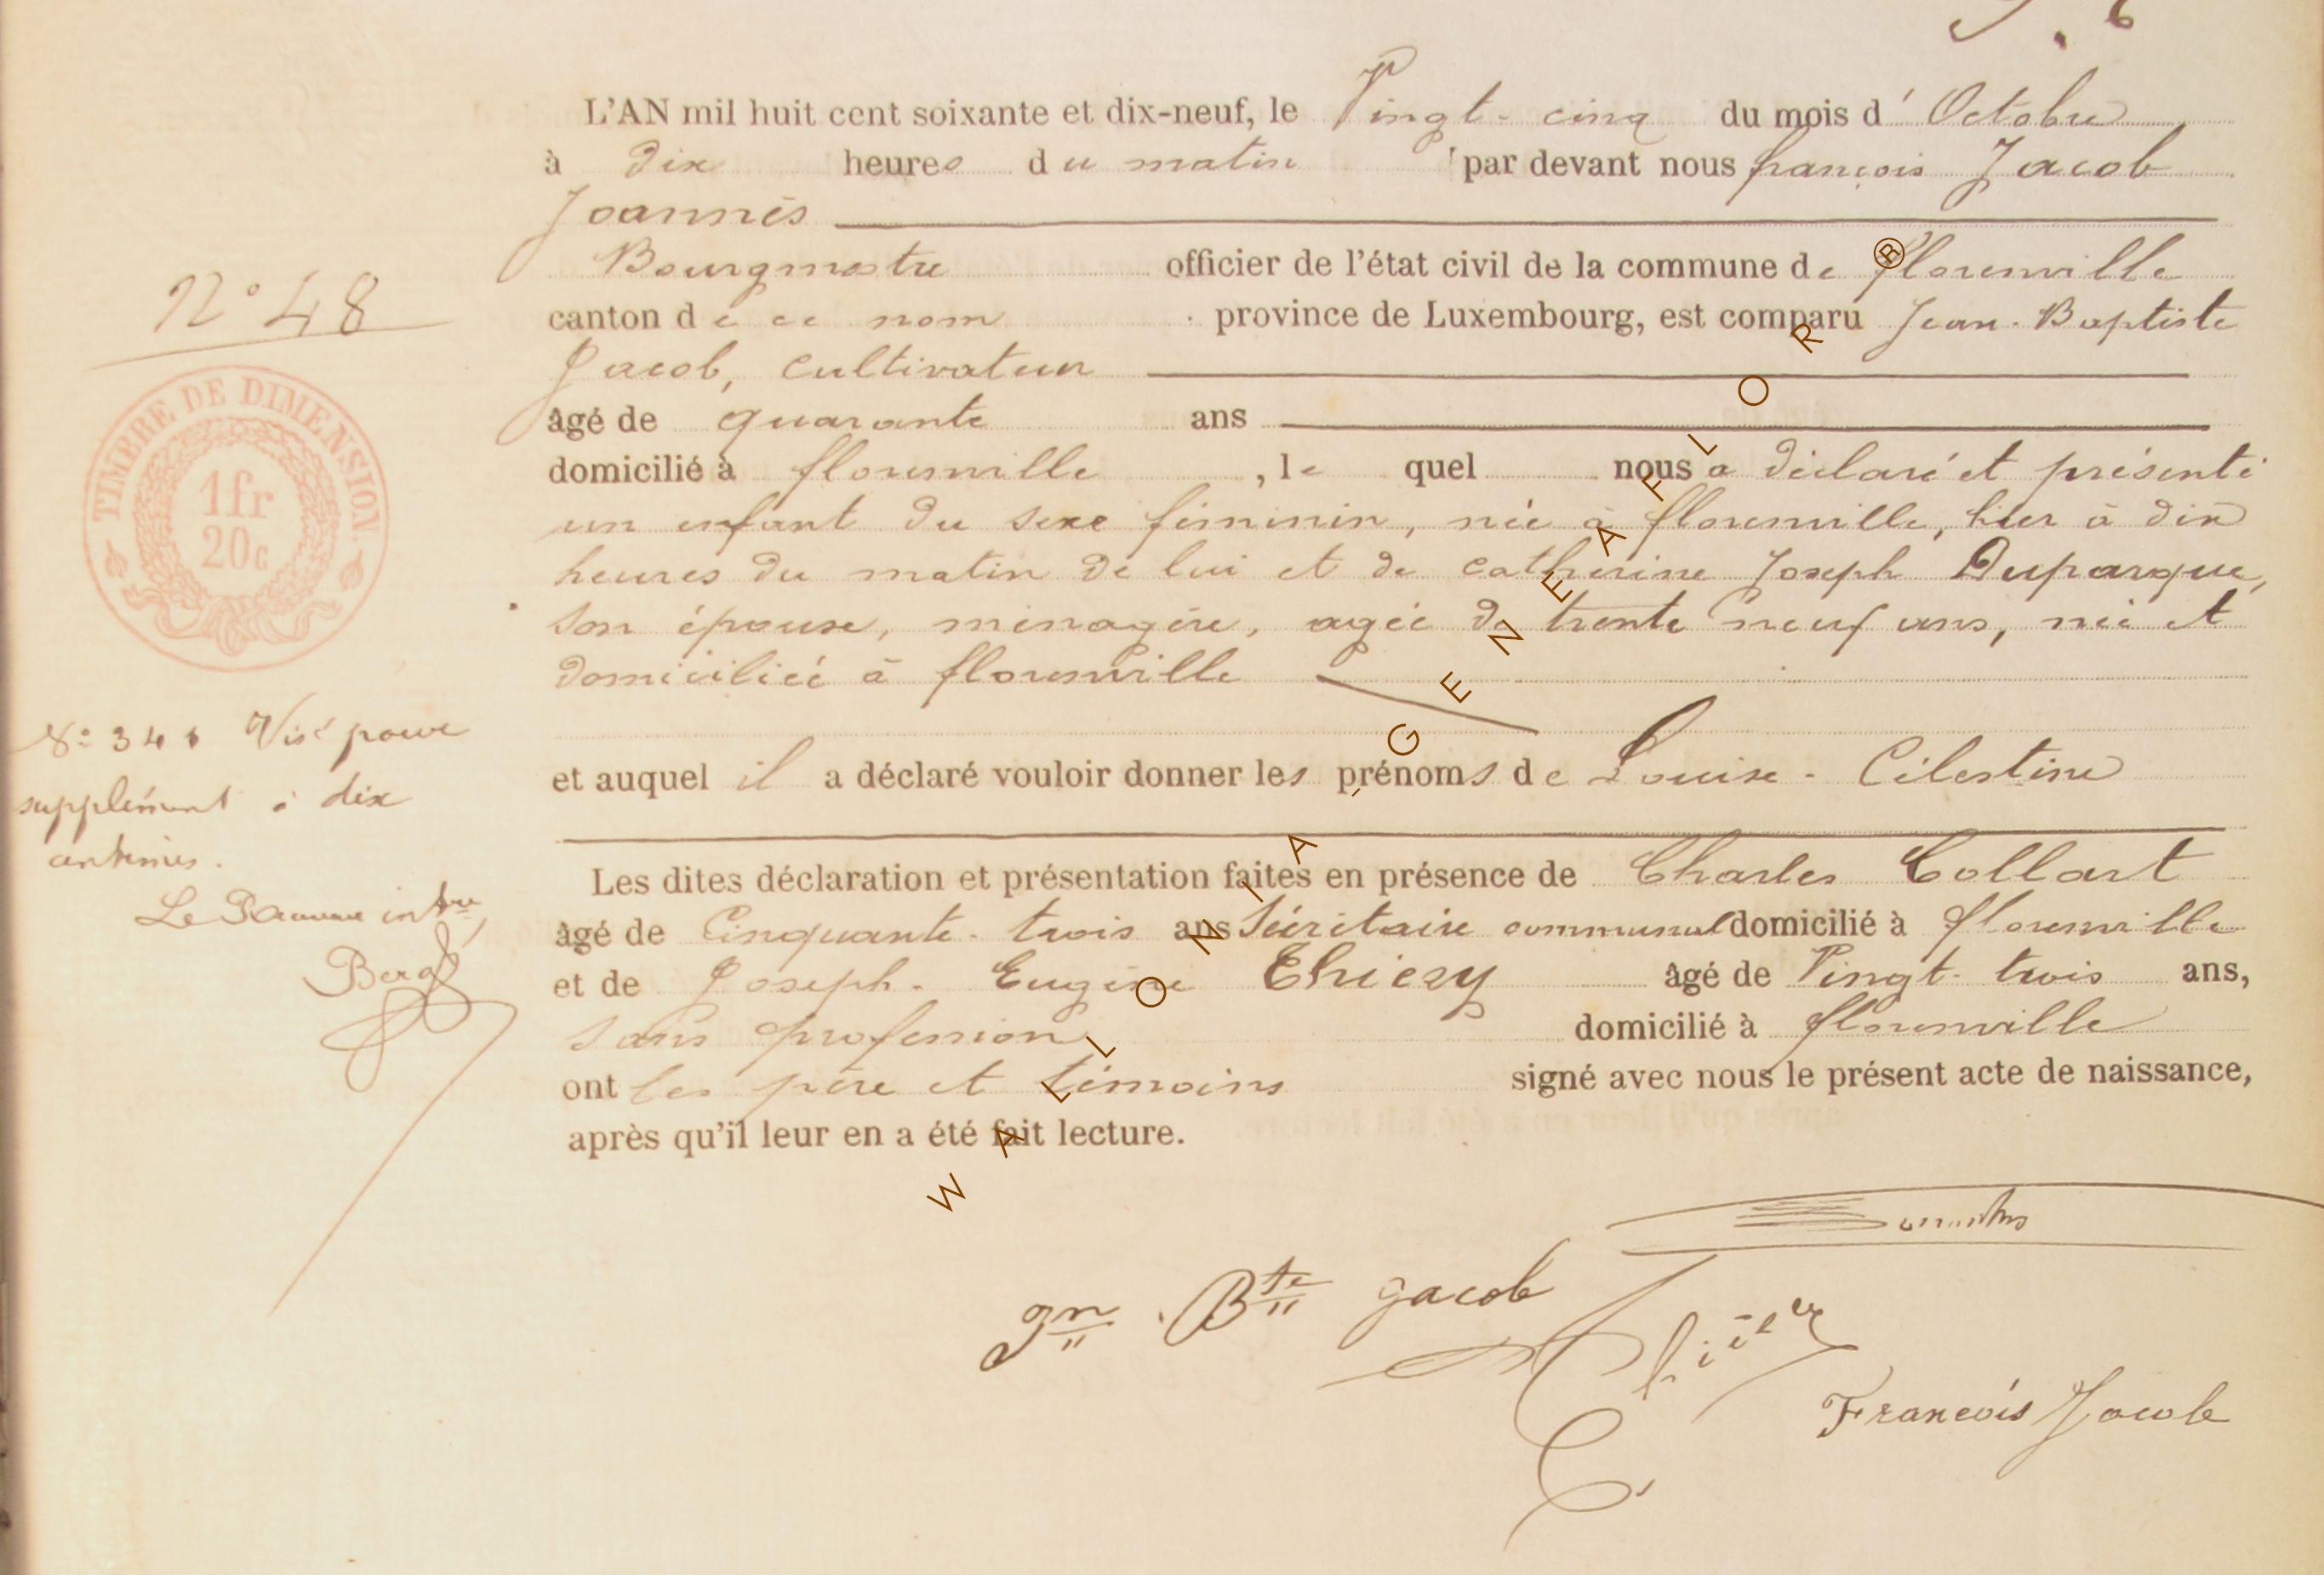 L'AN mil huit cent soixante et dix-neuf, le Vingt-cinq du mois d' Octobre
à dix heures du matin par devant nous françois Jacob
Joannès
Bourgmestre officier de l'état civil de la commune de florenville
canton de ce nom province de Luxembourg, est comparu Jean-Baptiste
Jacob, cultivateur
âgé de quarante ans
domicilié à florenville, le quel nous a déclaré et présenté
un enfant du sexe féminin, née à florenville, hier à dix
heures du matin de lui et de catherine Joseph Duparque,
son épouse, ménagère, agée de trente neuf ans, née et
domiciliée à florenville
et auquel il a déclaré vouloir donner les prénoms de Louise-Célestine
Les dites déclaration et présentation faites en présence de Charles Collart
âgé de Cinquante-trois ans Sécrétaire communal domicilié à florenville
et de Joseph-Eugène Thiery âgé de Vingt-trois ans,
sans profession domicilié à florenville
ont les père et témoins signé avec nous le présent acte de naissance,
après qu'il leur en a été fait lecture.
N° 48
TIMBRE DE DIMENSION.
1fr
20c
Visé pour
supplément à dix
centimes.
Le
Jn Bte Jacob
Thiéry
Francois Jacob
WALLONIA - GENEAFLOR ®